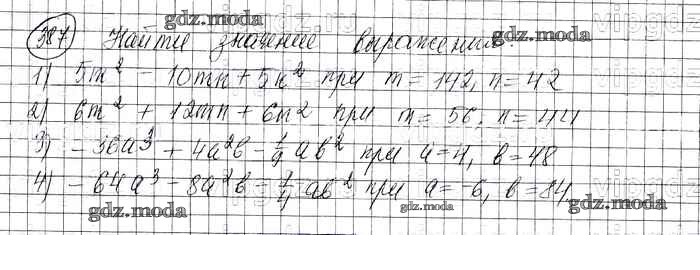 gdz.moda
387 Найти значение выражения: gdz.moda
1) 5m² - 10mn + 5n² при m = 142, n = 42
2) 6m² + 12mn + 6n² при m = 56, n = 44
3) -36a³ + 4a²b - 1/9 ab² при a = 4, b = 48
4) -64a³ - 8a²b - 1/4 ab² при a = -6, b = 84
gdz.moda gdz.moda gdz.moda